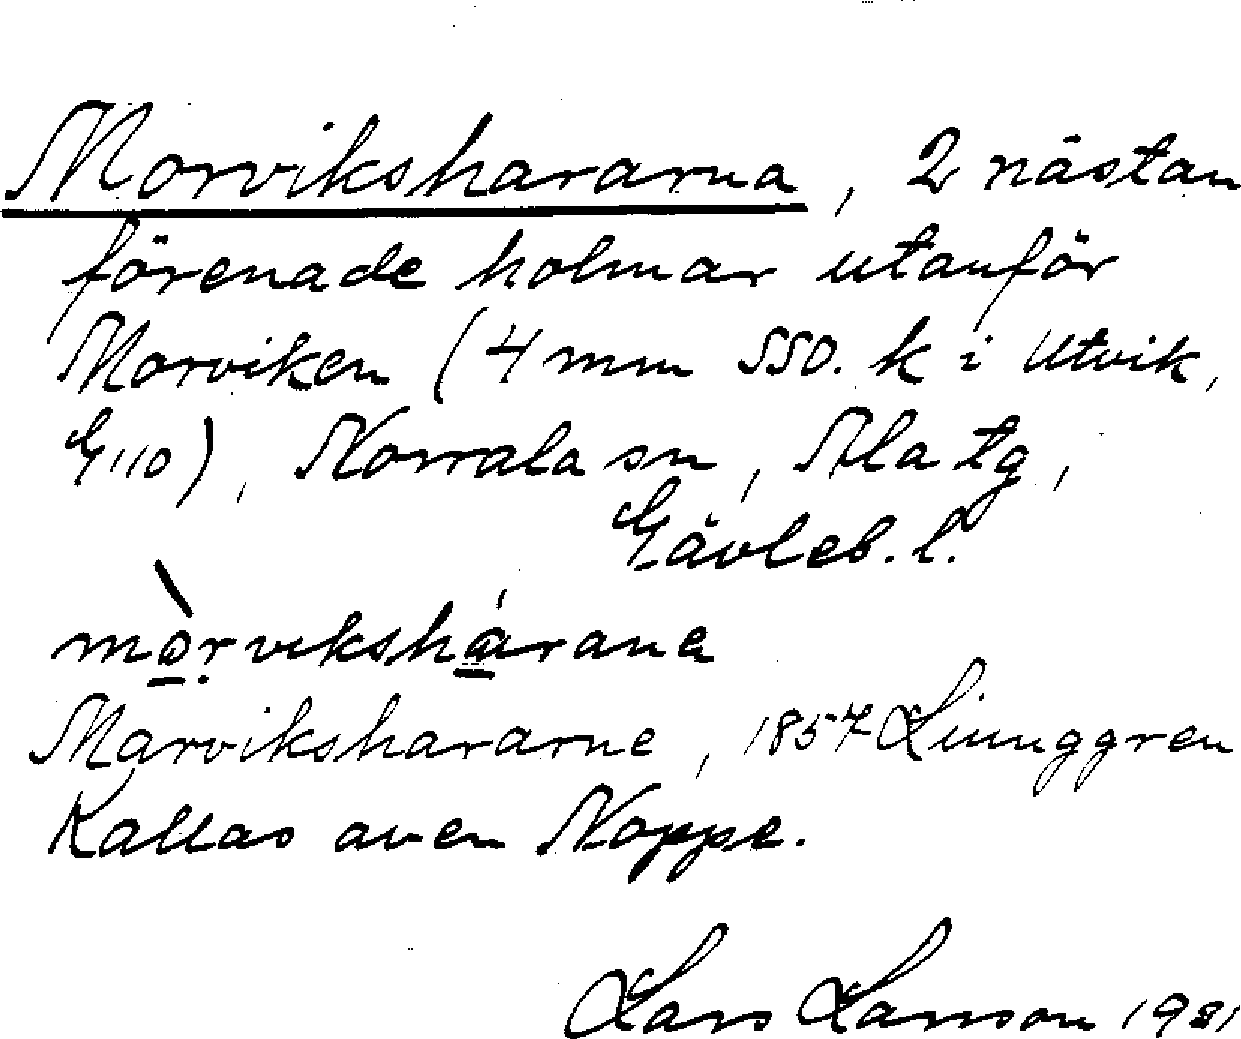 Morvikshararna, 2 nästan
förenade holmar utanför
Morviken (4 mm SSO. k i Utvik,
G110), Norrala sn, Ala tg,
Gävleb. l.
mò̱ṛvikshá̱rana
Marvikshararne, 1857 Liunggren
Kallas även Noppe.
Lars Larsson 1931